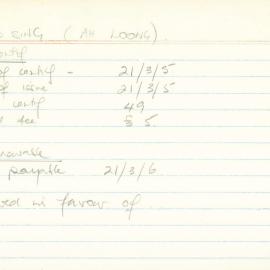 SING (AH LOONG).
of certif - 21/3/5
of issue 21/3/5
certif 49
fee § 5.
payable 21/3/6.
in favour of